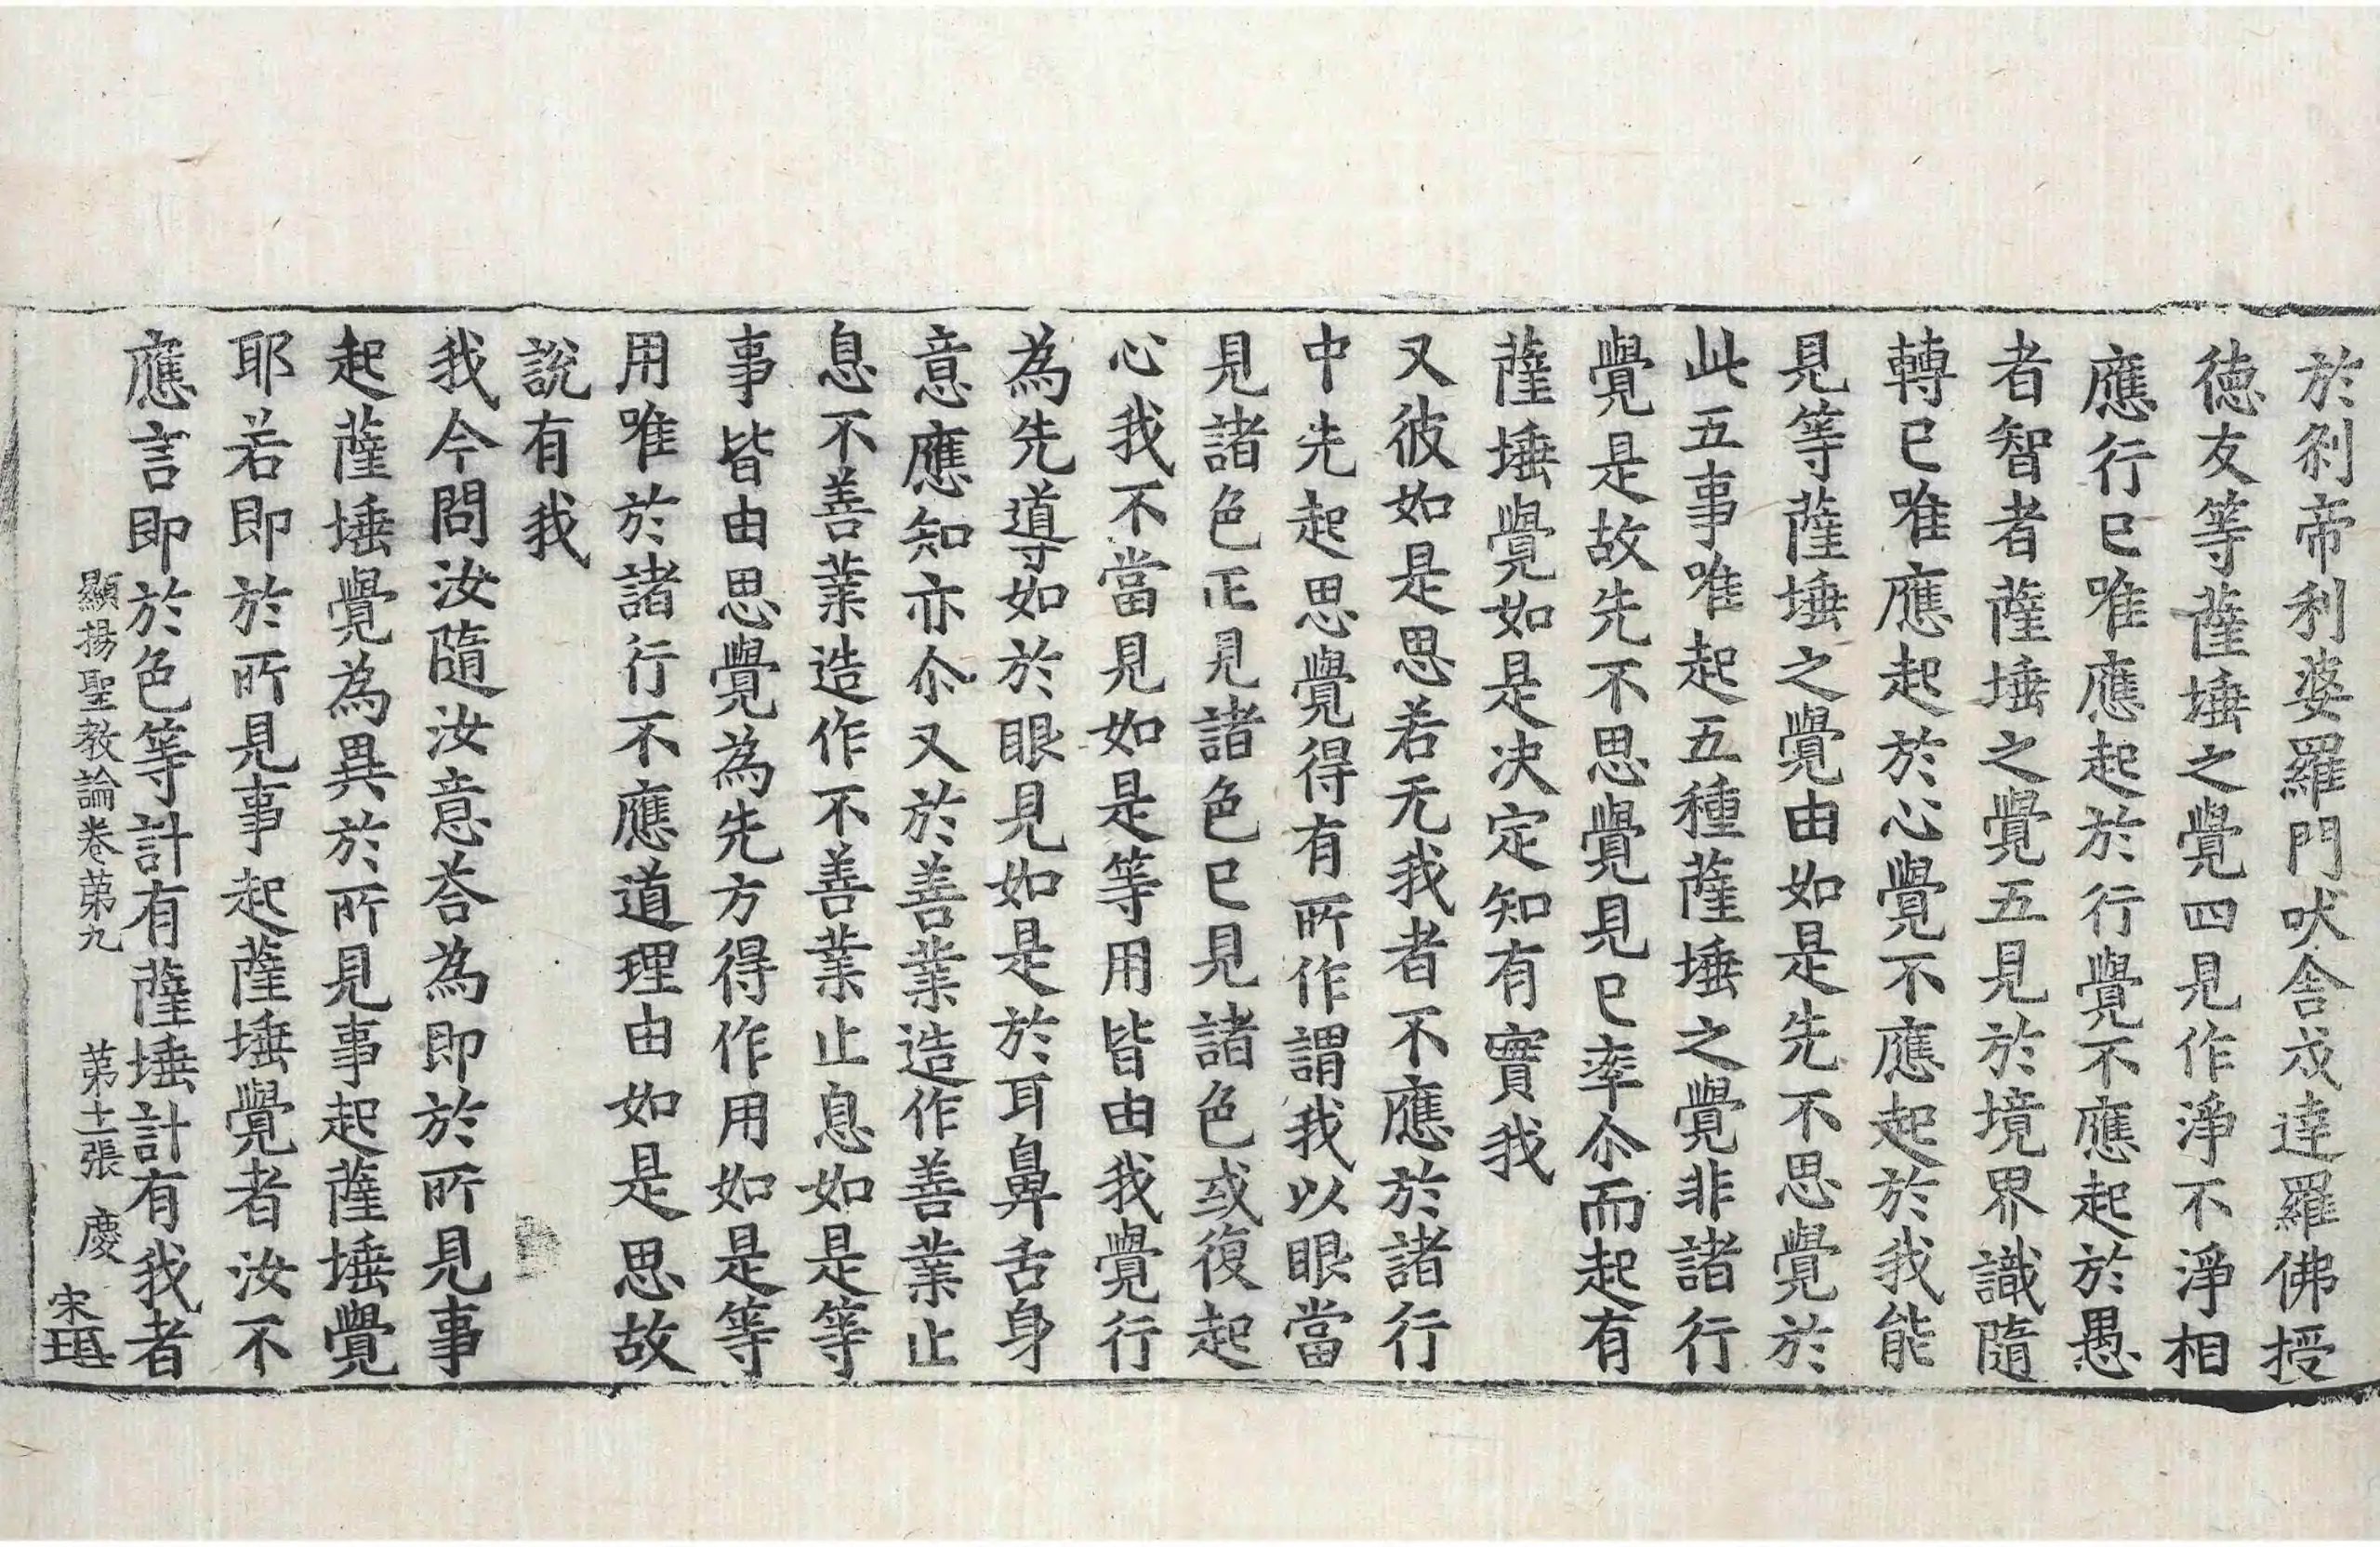 於刹帝利婆羅門吠舍戍達羅佛授
德友等薩埵之覺四見作淨不淨相
應行已唯應起於行覺不應起於愚
者智者薩埵之覺五見於境界識隨
轉已唯應起於心覺不應起於我能
見等薩埵之覺由如是先不思覺於
此五事唯起五種薩埵之覺非諸行
覺是故先不思覺見已率尒而起有
薩埵覺如是决定知有實我
又彼如是思若无我者不應於諸行
中先起思覺得有所作謂我以眼當
見諸色正見諸色已見諸色或復起
心我不當見如是等用皆由我覺行
為先導如於眼見如是於耳鼻舌身
意應知亦尒又於善業造作善業止
息不善業造作不善業止息如是等
事皆由思覺為先方得作用如是等
用唯於諸行不應道理由如是思故
說有我
我今問汝隨汝意荅為即於所見事
起薩埵覺為異於所見事起薩埵覺
耶若即於所見事起薩埵覺者汝不
應言即於色等計有薩埵計有我者
顯揚聖教論卷苐九 苐十二張 慶
宋瑱